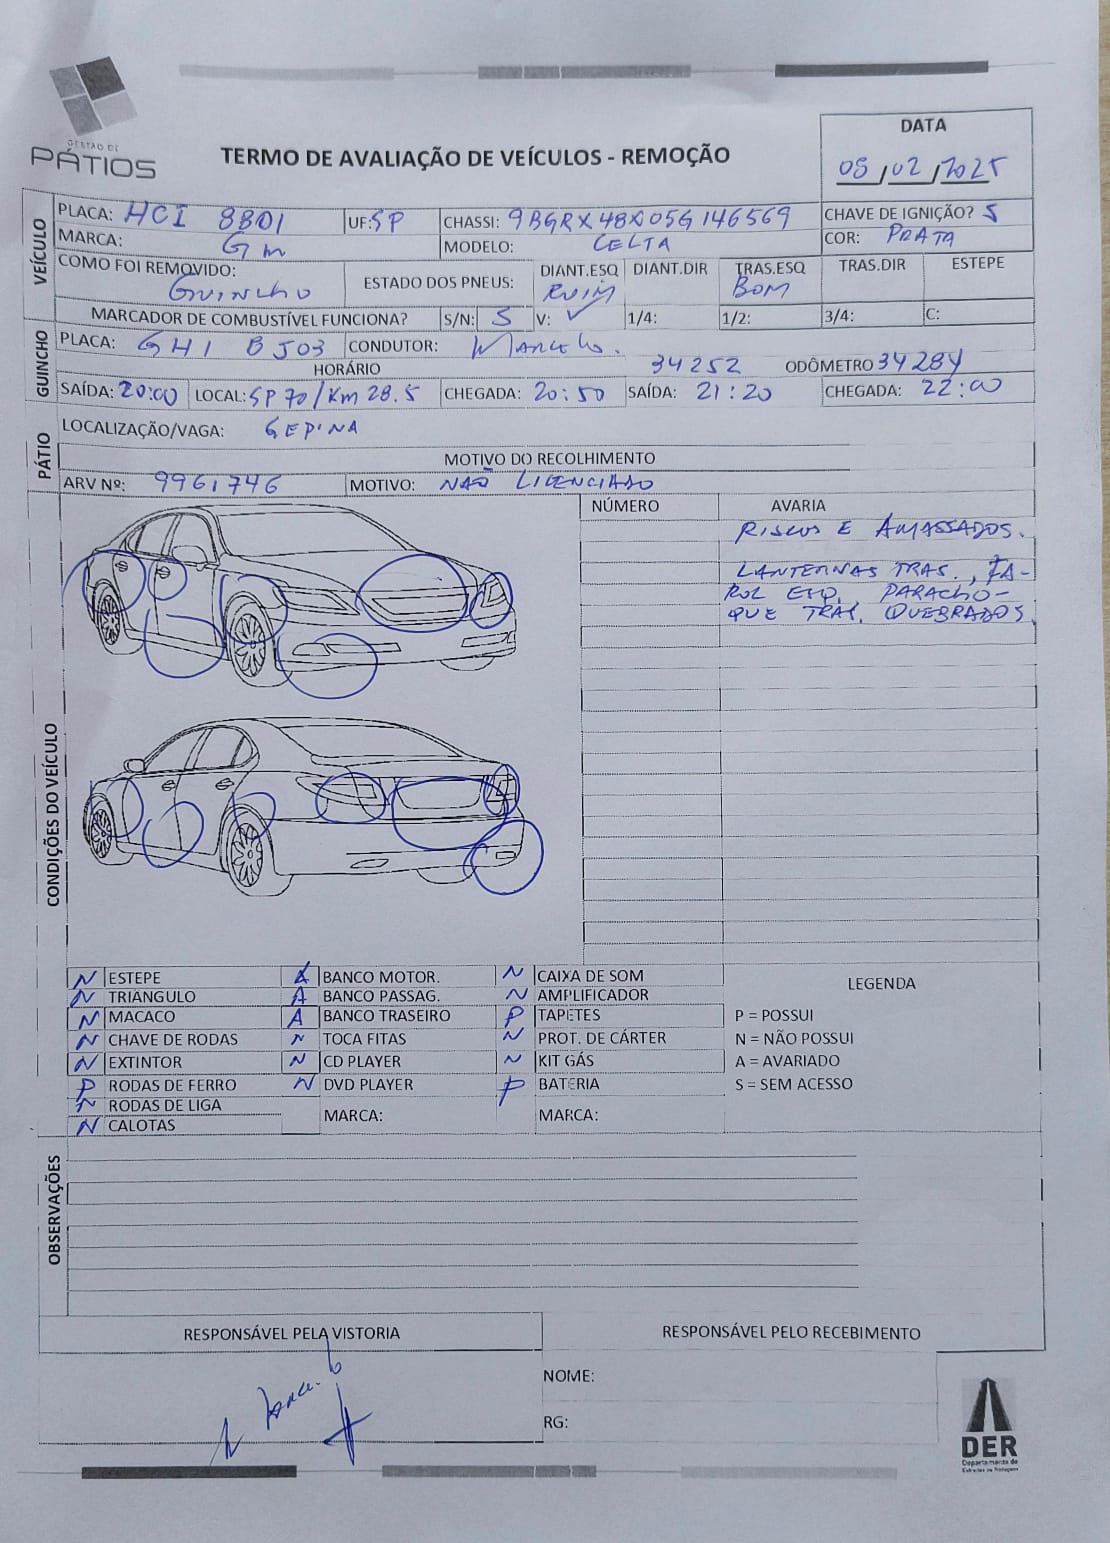 GESTÃO DE
PÁTIOS
TERMO DE AVALIAÇÃO DE VEÍCULOS - REMOÇÃO
DATA
08/02/2025
VEÍCULO
PLACA: HCI 8801 UF: SP CHASSI: 9BGRX48X05G146569 CHAVE DE IGNIÇÃO? S
MARCA: GM MODELO: CELTA COR: PRATA
COMO FOI REMOVIDO: GUINCHO ESTADO DOS PNEUS: DIANT.ESQ RUIM DIANT.DIR TRAS.ESQ BOM TRAS.DIR ESTEPE
MARCADOR DE COMBUSTÍVEL FUNCIONA? S/N: S V: ✓ 1/4: 1/2: 3/4: C:
GUINCHO
PLACA: GHI BJ03 CONDUTOR: MARCELO.
HORÁRIO 34252 ODÔMETRO 34284
SAÍDA: 20:00 LOCAL: SP 70/KM 28.5 CHEGADA: 20:50 SAÍDA: 21:20 CHEGADA: 22:00
PÁTIO
LOCALIZAÇÃO/VAGA: GEPINA
MOTIVO DO RECOLHIMENTO
ARV Nº: 9961746 MOTIVO: NÃO LICENCIADO
CONDIÇÕES DO VEÍCULO
NÚMERO AVARIA
RISCOS E AMASSADOS.
LANTERNAS TRAS., FA-
ROL ESQ. PARACHO-
QUE TRAS. QUEBRADOS
N ESTEPE A BANCO MOTOR. N CAIXA DE SOM LEGENDA
N TRIANGULO A BANCO PASSAG. N AMPLIFICADOR
N MACACO A BANCO TRASEIRO P TAPETES P = POSSUI
N CHAVE DE RODAS N TOCA FITAS N PROT. DE CÁRTER N = NÃO POSSUI
N EXTINTOR N CD PLAYER N KIT GÁS A = AVARIADO
P RODAS DE FERRO N DVD PLAYER P BATERIA S = SEM ACESSO
N RODAS DE LIGA MARCA: MARCA:
N CALOTAS
OBSERVAÇÕES
RESPONSÁVEL PELA VISTORIA RESPONSÁVEL PELO RECEBIMENTO
NOME:
RG:
DER
Departamento de
Estradas de Rodagem